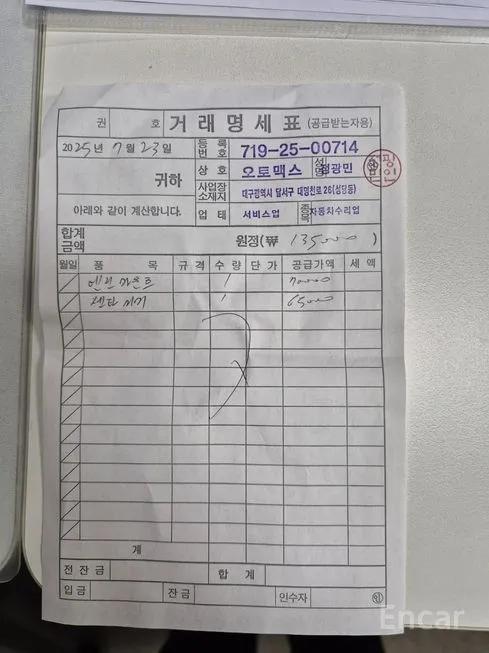 권 호 거래명세표 (공급받는자용)
2025년 7월 23일
등록번호 719-25-00714
귀하
상호 오토맥스 성명 정광민
사업장소재지 대구광역시 달서구 대명천로 26(성당동)
아래와 같이 계산합니다.
업태 서비스업 종목 자동차수리업
합계금액 원정(₩ 135000 )
월일 품 목 규격 수량 단가 공급가액 세액
엔진 마운트 1 70000
센타 미미 1 65000
계
전잔금 합 계
입금 잔금 인수자 ㊞
Encar